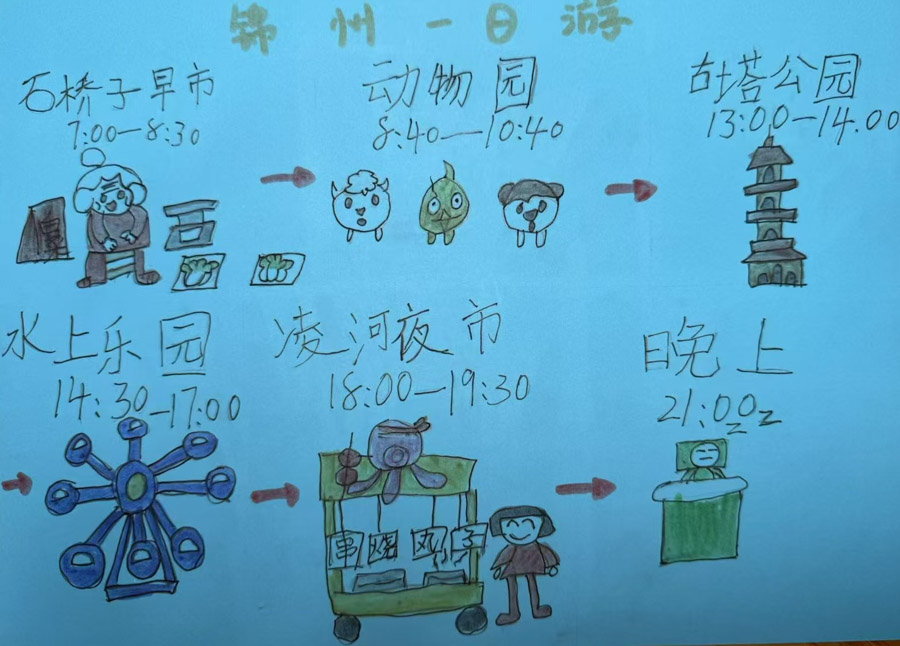 锦州一日游
石桥子早市
7:00—8:30
动物园
8:40—10:40
古塔公园
13:00—14.00
水上乐园
14:30—17:00
凌河夜市
18:00—19:30
串烧丸子
晚上
21:00
zz